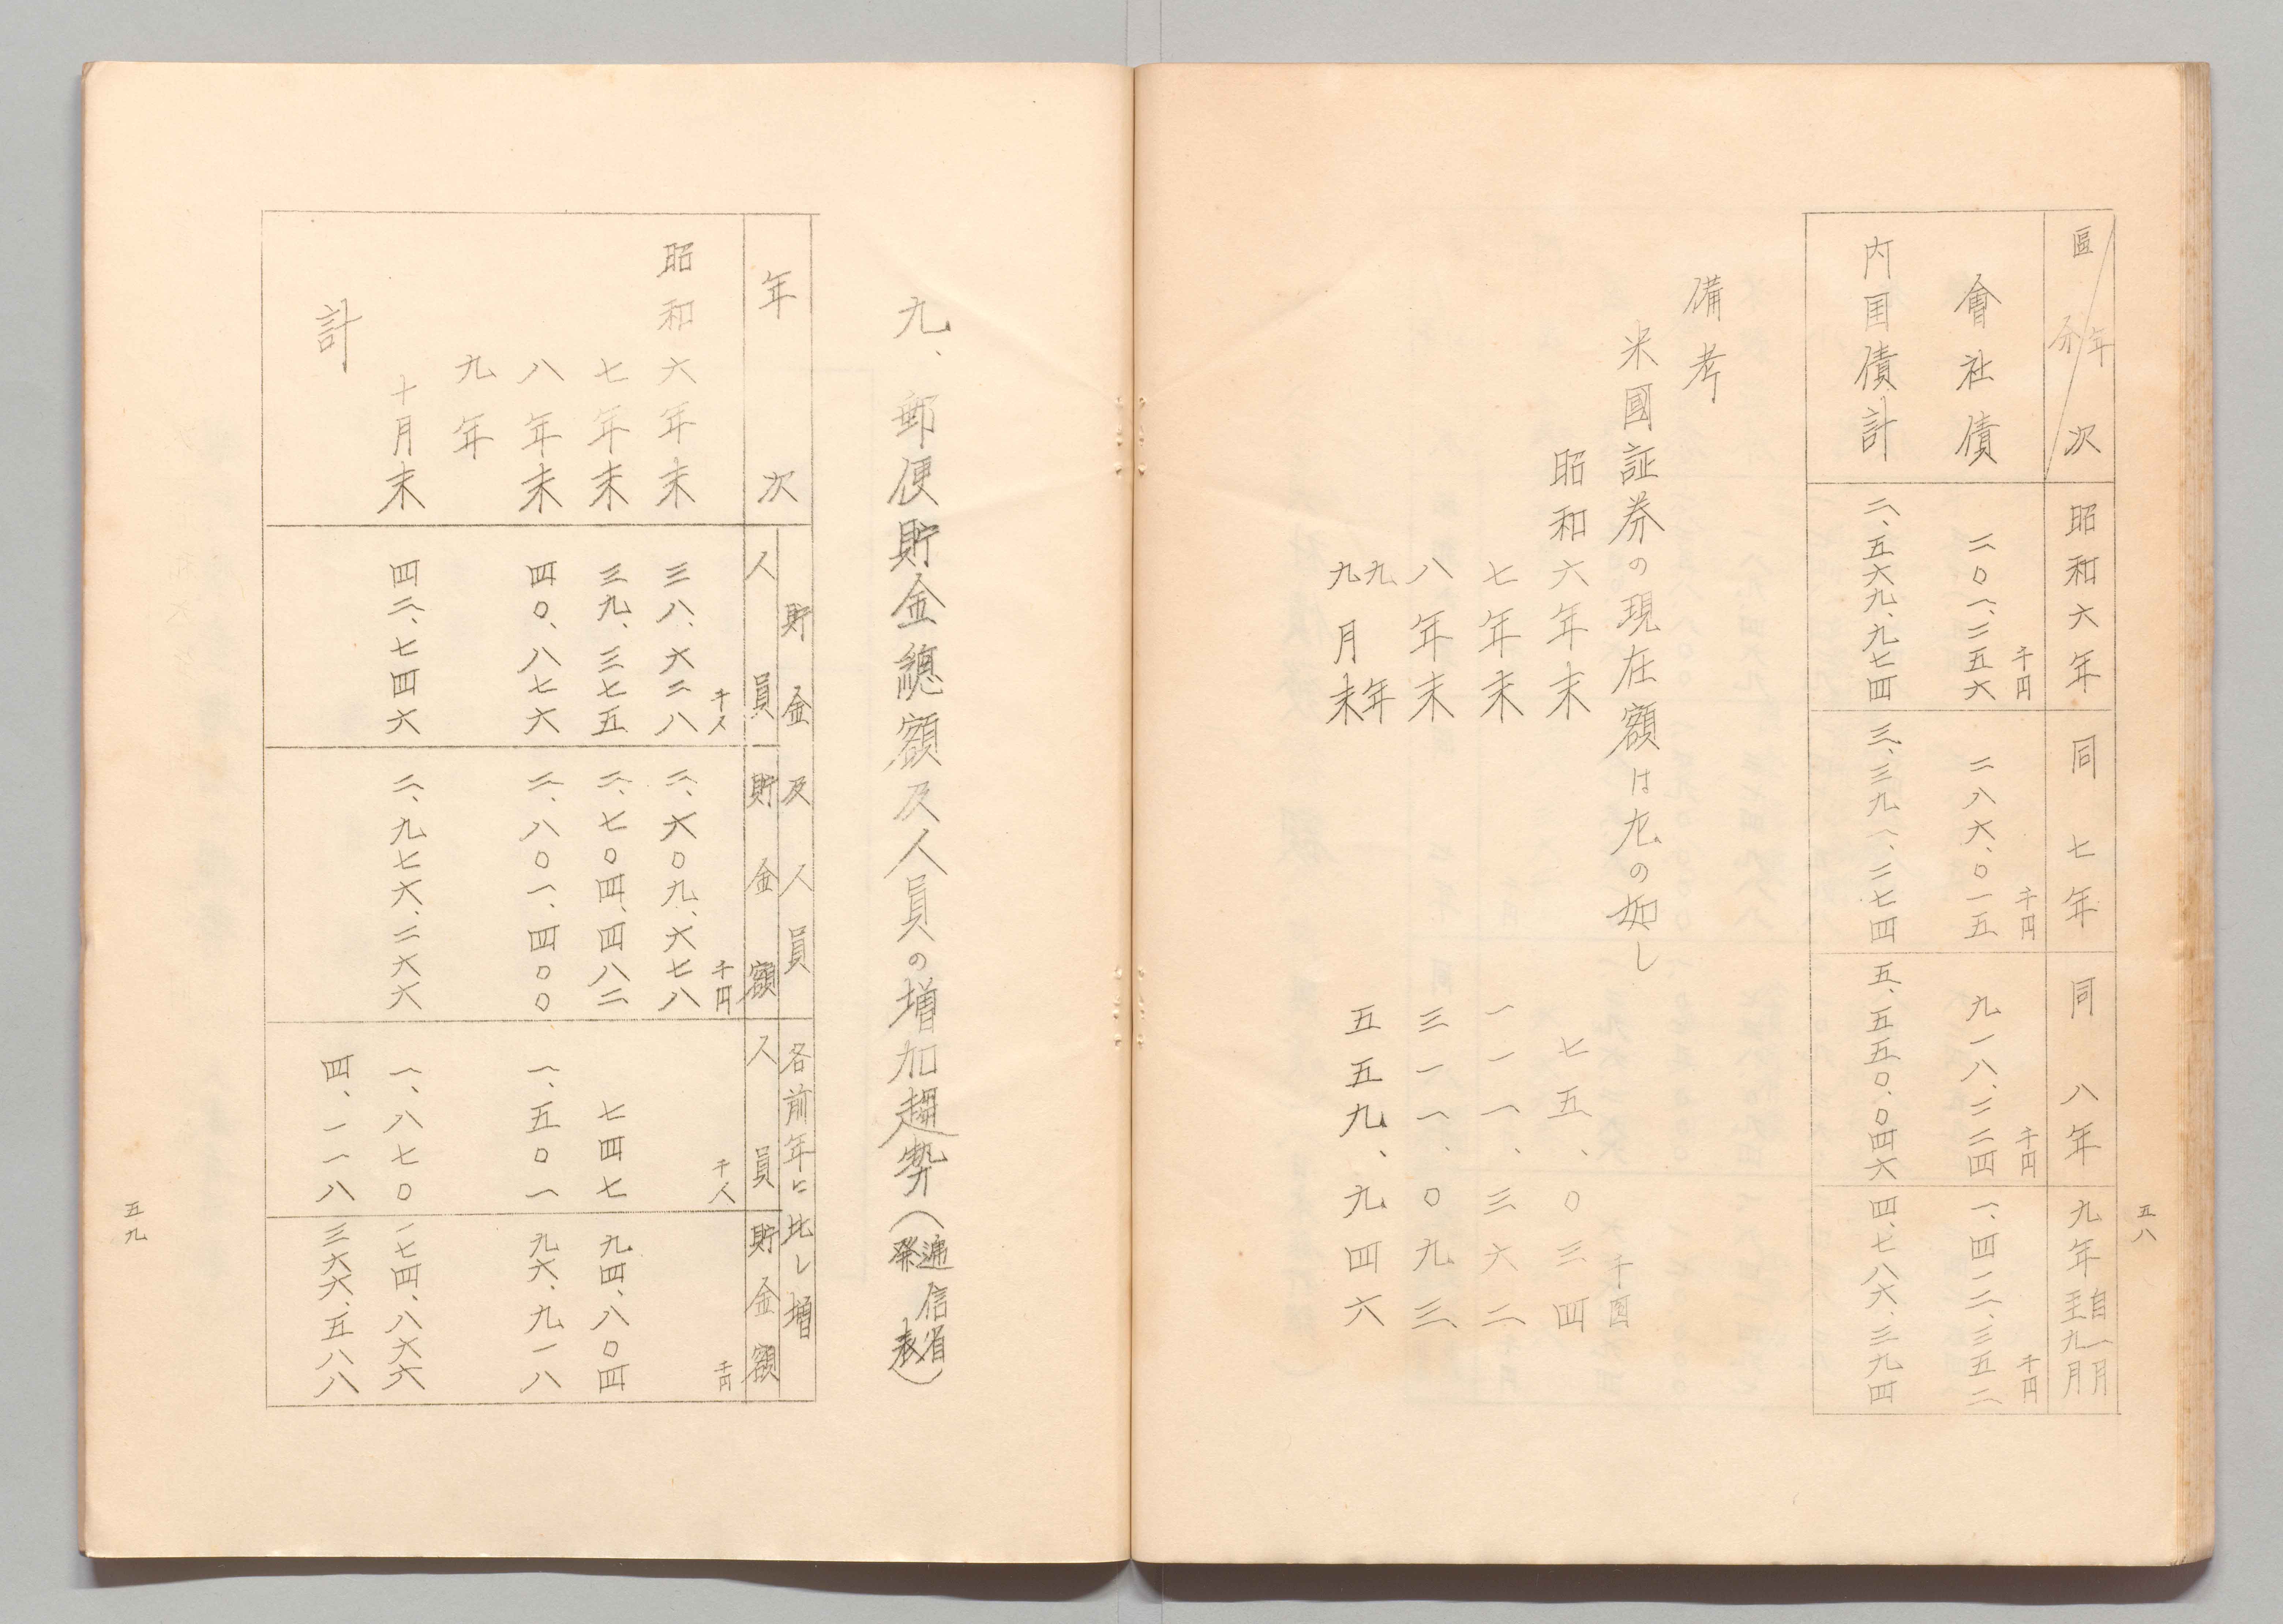 五八
區分 年次
昭和六年
同七年
同八年
九年自一月至九月
千円
千円
千円
千円
會社債
二〇一、二五六
二八六、〇一五
九一八、二二四
一、四一二、三五二
内国債計
二、五六九、九七四
三、三九一、二七四
五、五五〇、〇四六
四、七八六、三九四
備考
米國証券の現在額は左の如し
千圓
昭和六年末 七五、〇三四
七年末 一一一、三六二
八年末 三一一、〇九三
九年
九月末 五五九、九四六
九、郵便貯金總額及人員の増加趨勢(遞信省發表)
年次
貯金及人員
各前年に比し増
人員
貯金額
人員
貯金額
千人
千円
千人
千円
昭和六年末 三八、六二八 二、六〇九、六七八
七年末 三九、三七五 二、七〇四、四八二 七四七 九四、八〇四
八年末 四〇、八七六 二、八〇一、四〇〇 一、五〇一 九六、九一八
九年
十月末 四二、七四六 二、九七六、二六六 一、八七〇 一七四、八六六
計 四、一一八 三六六、五八八
五九